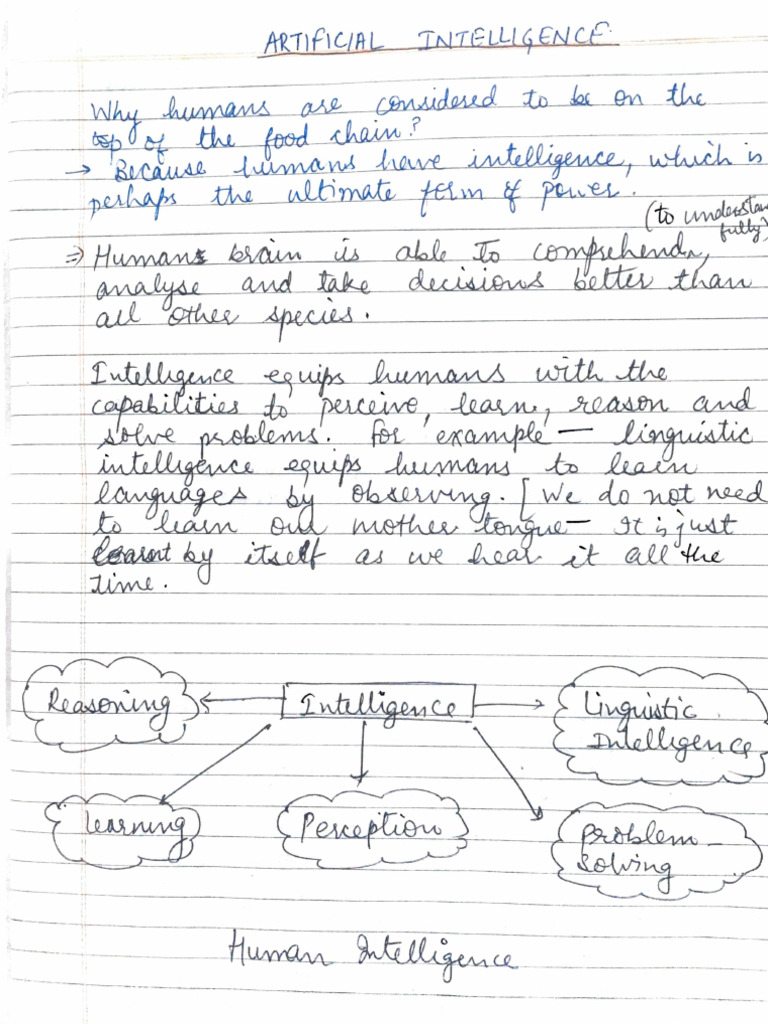 ARTIFICIAL INTELLIGENCE
Why humans are considered to be on the
top of the food chain?
→ Because humans have intelligence, which is
perhaps the ultimate form of power.
(to understan
fully)
⇒ Human brain is able to comprehend,
analyse and take decisions better than
all other species.
Intelligence equips humans with the
capabilities to perceive, learn, reason and
solve problems. For example — linguistic
intelligence equips humans to learn
languages by observing. [We do not need
to learn our mother tongue — It is just
learnt by itself as we hear it all the
time.
Reasoning
Intelligence
Linguistic
Intelligence
Learning
Perception
Problem-
Solving
Human Intelligence